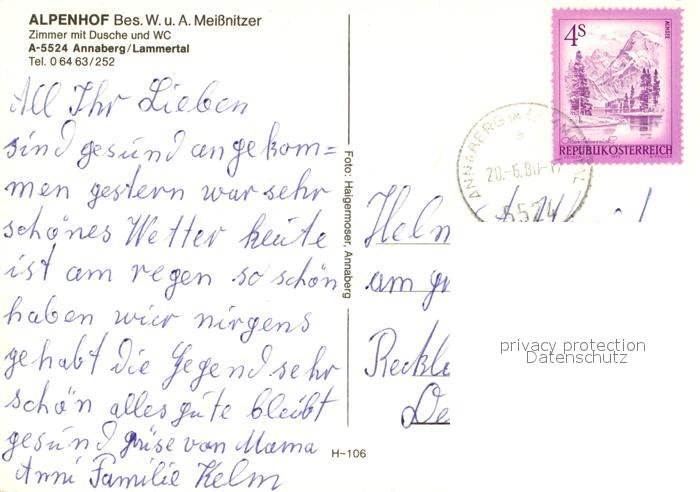 ALPENHOF Bes. W. u. A. Meißnitzer
Zimmer mit Dusche und WC
A-5524 Annaberg/Lammertal
Tel. 0 64 63/252
All Ihr Lieben
sind gesund angekom=
men gestern war sehr
schönes Wetter heute
ist am regen so schön
haben wir nirgens
gehabt die Gegend sehr
schön alles gute bleibt
gesund grüse von Mama
Anni Familie Kelm
Foto: Haigermoser, Annaberg
H-106
4S
ALMSEE
REPUBLIK ÖSTERREICH
ANNABERG
20.-6.80-17
5524
Helm
am gr
Reckl
De
privacy protection
Datenschutz